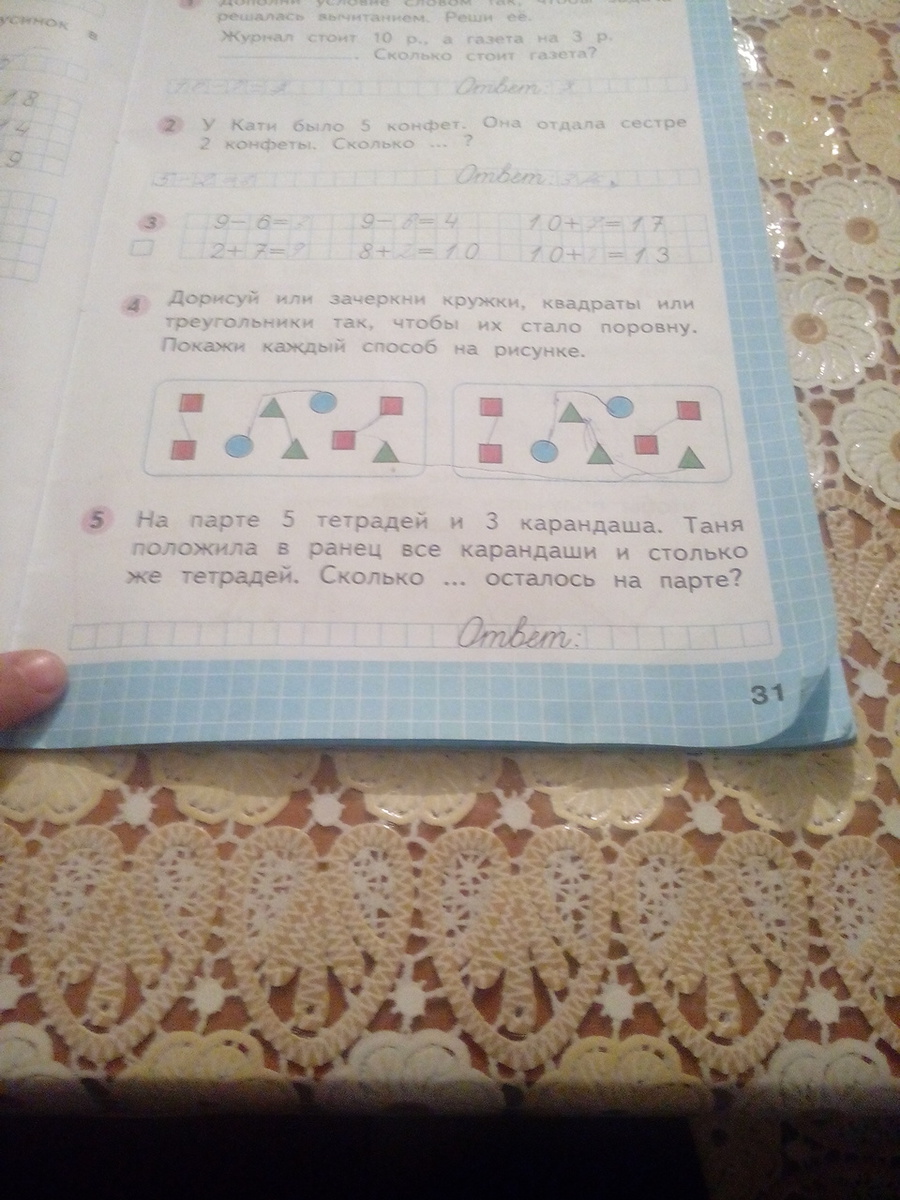 усинок
в
18
14
9
1 Дополни условие словом так, чтобы задача
решалась вычитанием. Реши её.
Журнал стоит 10 р., а газета на 3 р.
. Сколько стоит газета?
Ответ:
2 У Кати было 5 конфет. Она отдала сестре
2 конфеты. Сколько ... ?
Ответ:
3 9-6= 9- =4 10+ =17
2+7= 8+ =10 10+ =13
4 Дорисуй или зачеркни кружки, квадраты или
треугольники так, чтобы их стало поровну.
Покажи каждый способ на рисунке.
5 На парте 5 тетрадей и 3 карандаша. Таня
положила в ранец все карандаши и столько
же тетрадей. Сколько ... осталось на парте?
Ответ:
31